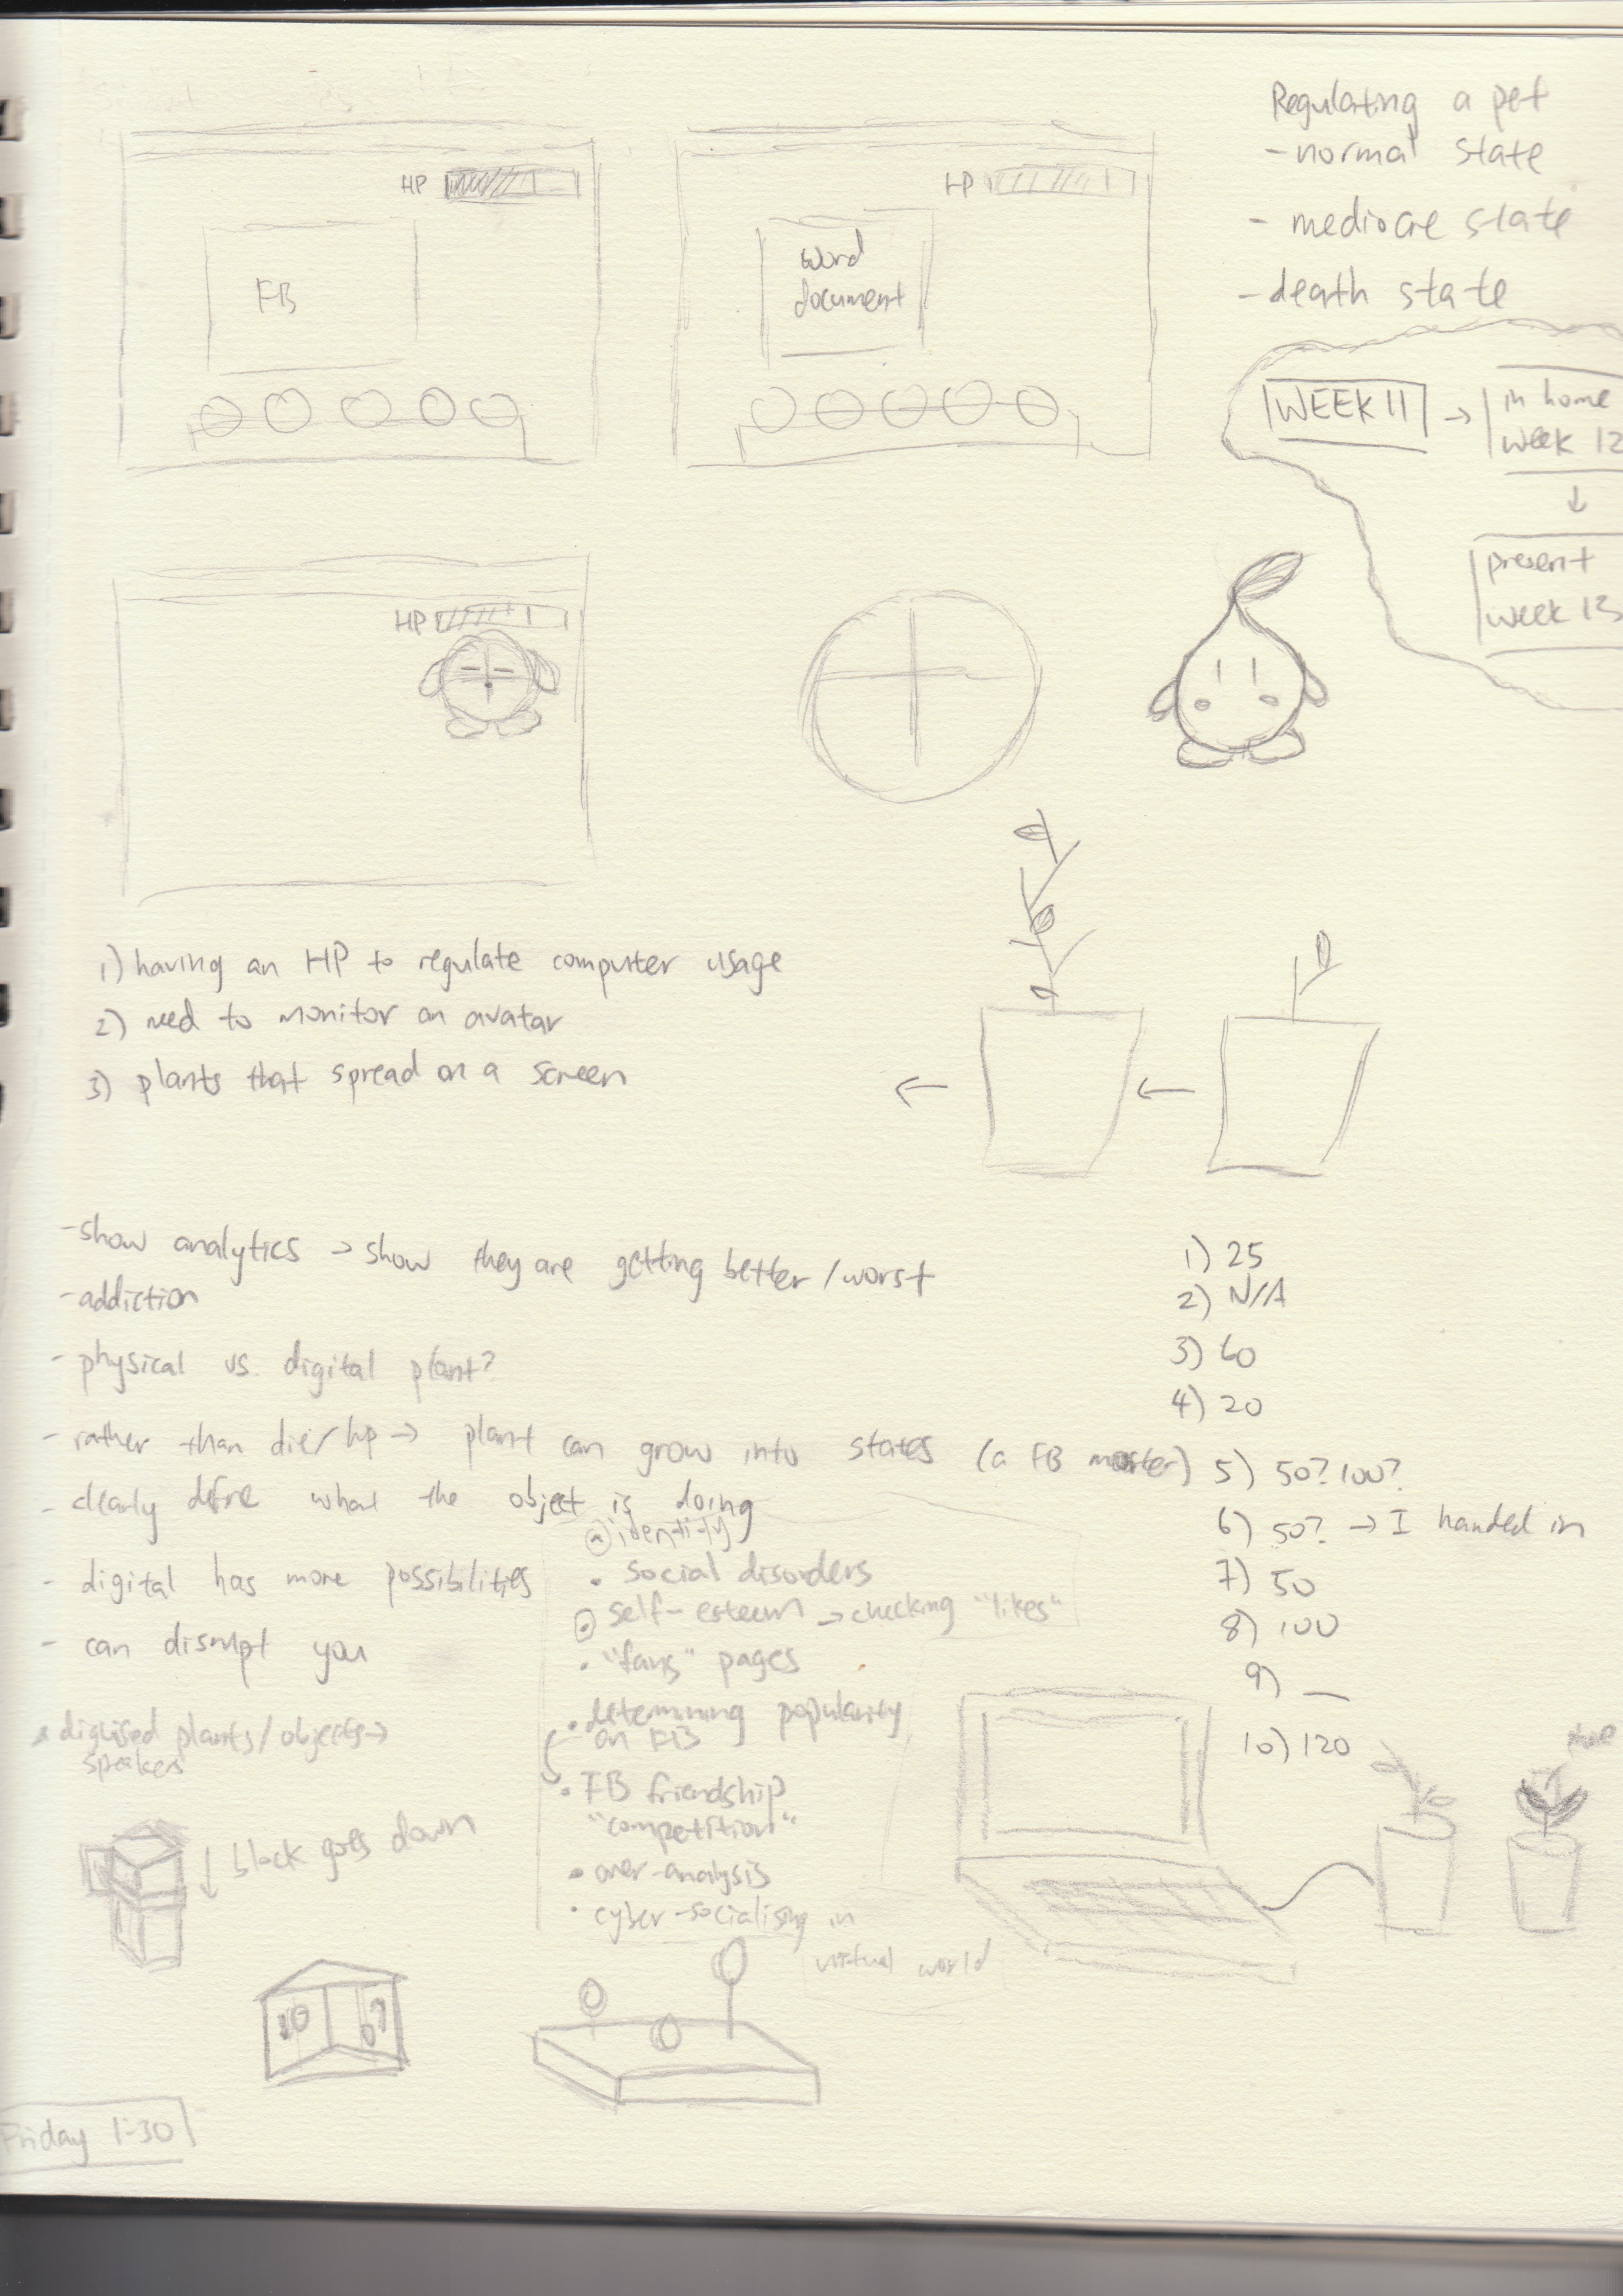 HP
FB
HP
word
document
Regulating a pet
- normal state
- mediocre state
- death state
WEEK 11 →
in home
week 12
↓
present
week 13
HP
1) having an HP to regulate computer usage
2) need to monitor an avatar
3) plants that spread on a screen
- show analytics → show they are getting better/worst
- addiction
- physical vs. digital plant?
- rather than die/hp → plant can grow into states (a FB
- clearly define what the object is doing
- digital has more possibilities
- can disrupt you
plants/objects →
speakers
↓ block goes down
identity
• social disorders
self-esteem → checking "likes"
• "fans" pages
• determining popularity
on FB
• FB friendship
"competition"
• over-analysis
• cyber-socialising in
virtual world
1) 25
2) N/A
3) 60
4) 20
5) 50? 100?
6) 50? → I handed in
7) 50
8) 100
9) —
10) 120
Friday 1:30